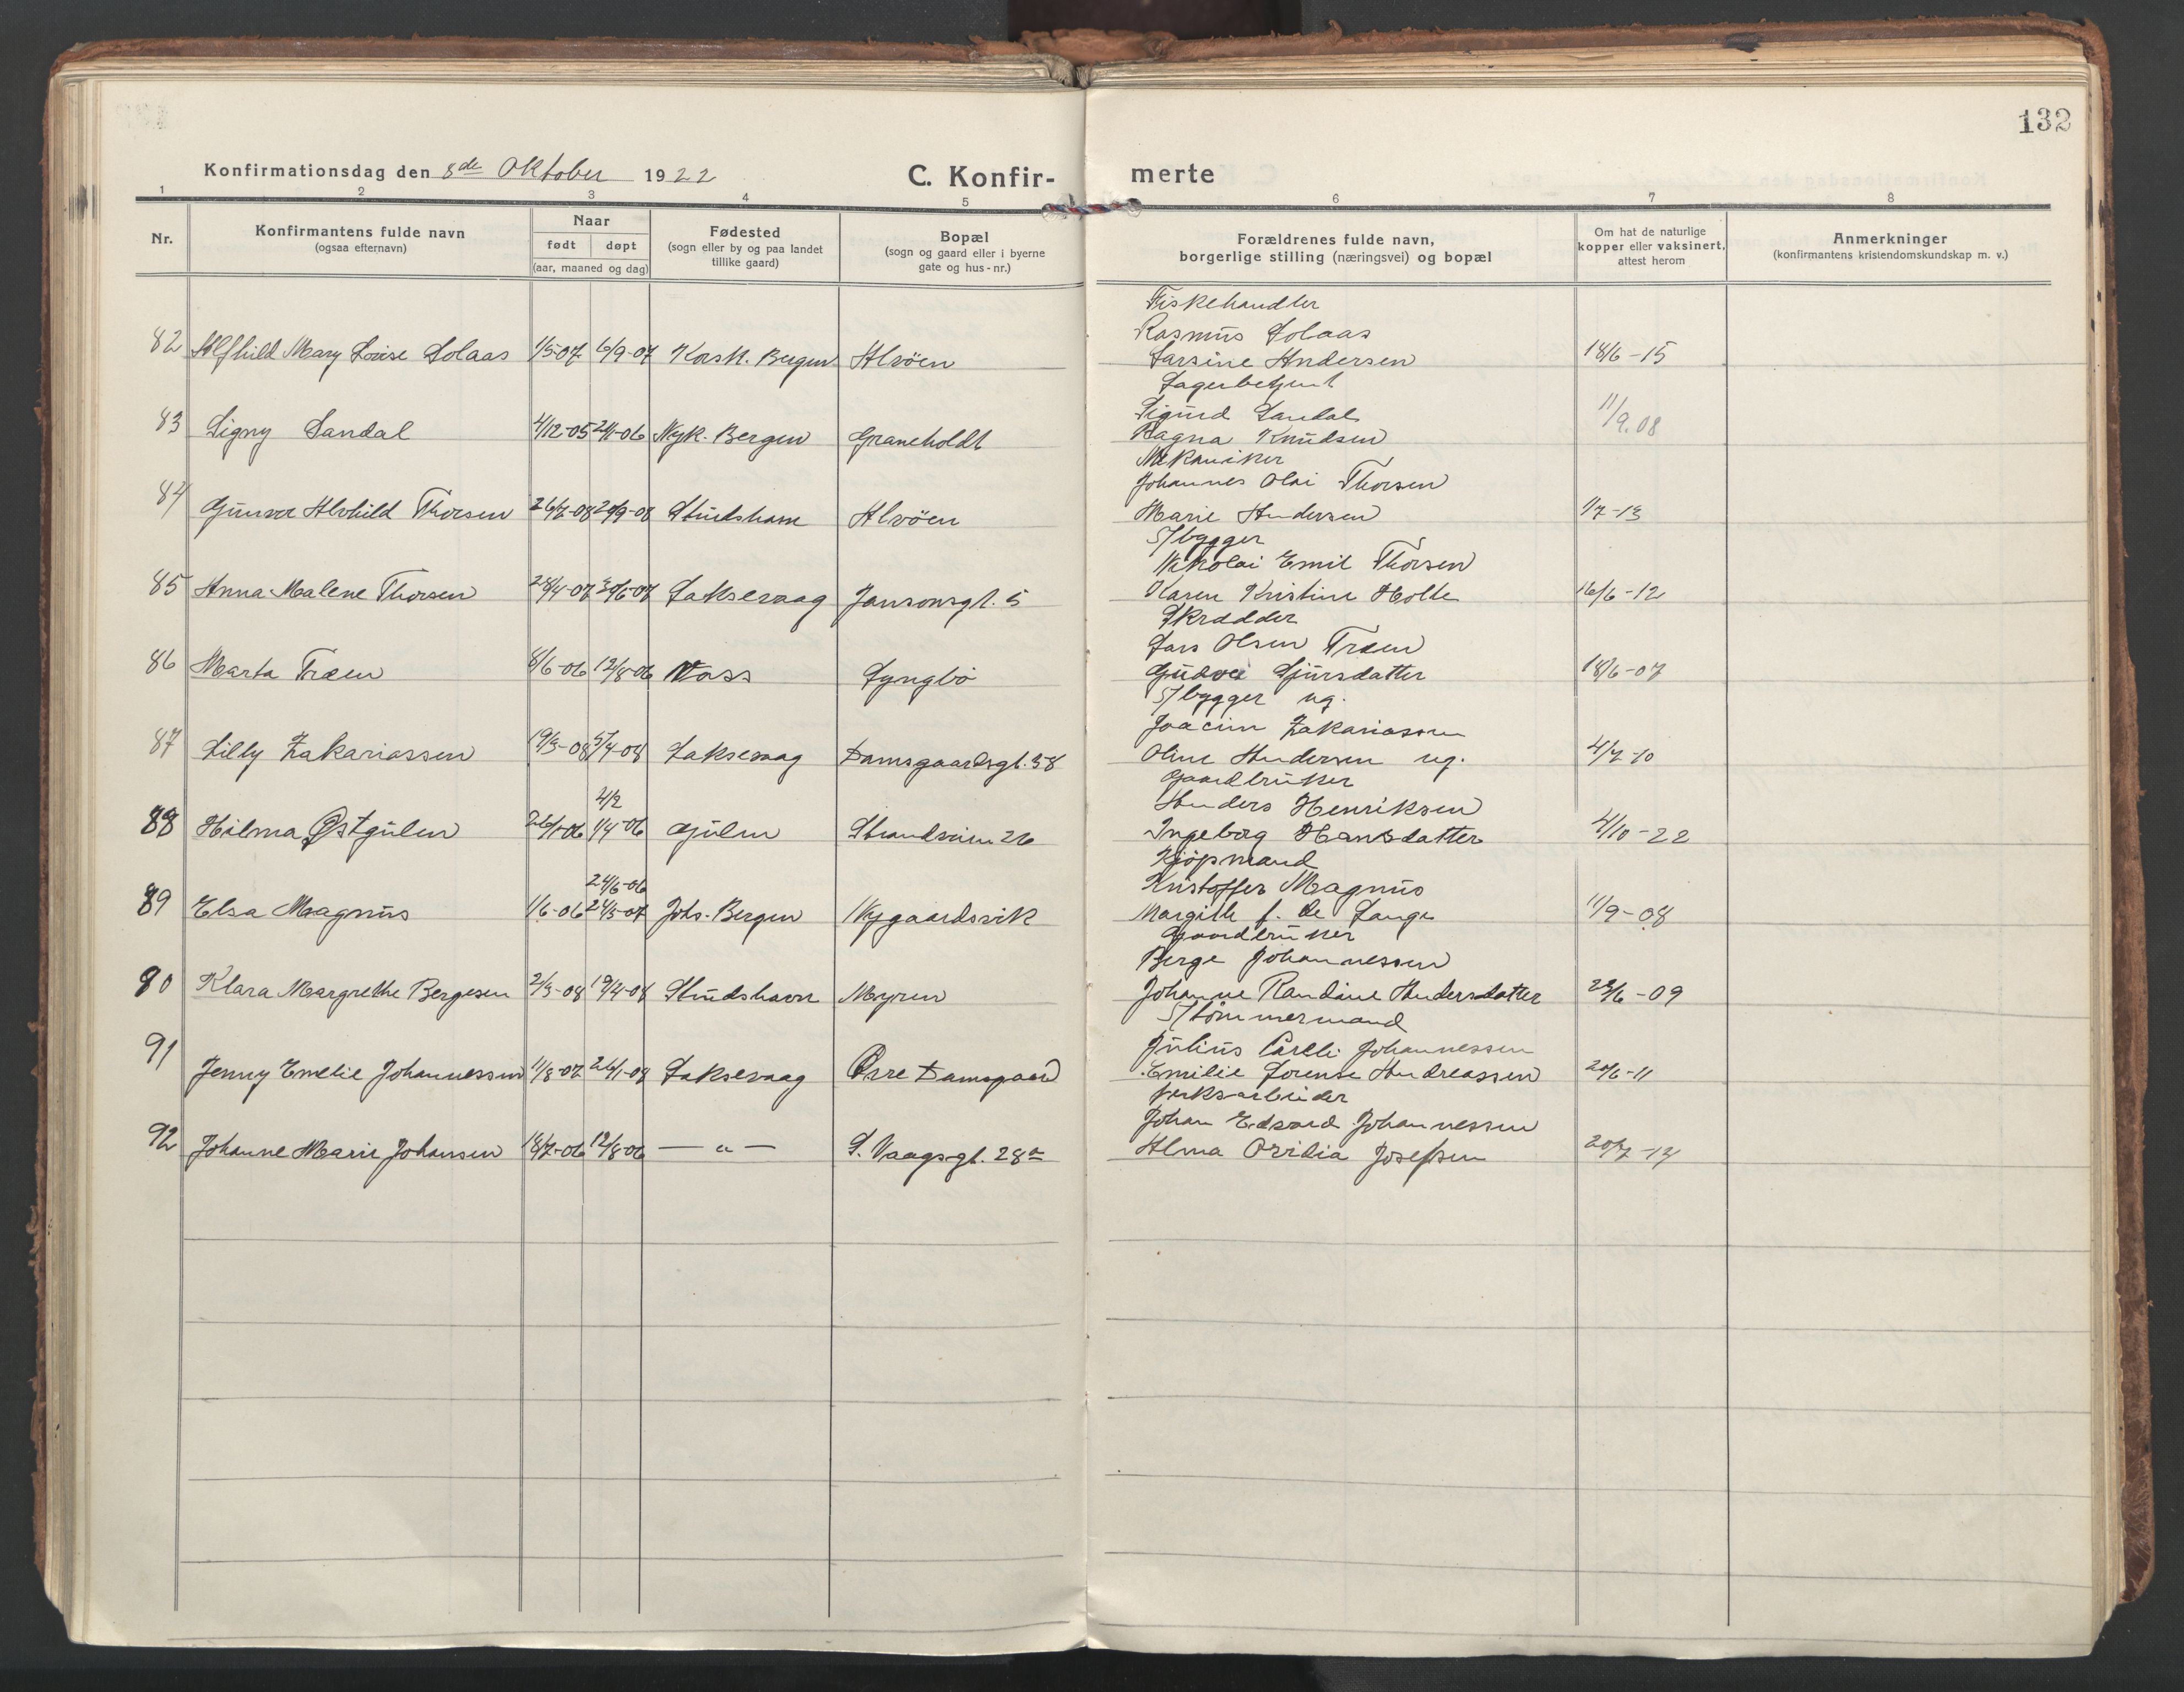 132
Konfirmationsdag den 8de Oktober 1922
C. Konfir- merte
1 2 3 4 5 6 7 8
Nr.
Konfirmantens fulde navn
(ogsaa efternavn)
Naar
født døpt
(aar, maaned og dag)
Fødested
(sogn eller by og paa landet
tillike gaard)
Bopæl
(sogn og gaard eller i byerne
gate og hus-nr.)
Forældrenes fulde navn,
borgerlige stilling (næringsvei) og bopæl
Om hat de naturlige
kopper eller vaksinert,
attest herom
Anmerkninger
(konfirmantens kristendomskundskap m. v.)
Fiskehandler
Rasmus Solaas
82 Alfhild Mary Lovise Solaas 1/5-07 6/9-07 Korsk. Bergen Alvöen Larsine Andersen 18/6-15
Lagerbetjent
Sigurd Sandal
83 Signy Sandal 4/12-05 Nyk. Bergen Graneholdt Ragna Knudsen 11/9.08
Mekaniker
Johannes Olai Thorsen
84 Gunvor Alvhild Thorsen 26/7-08 20/9-08 Alvöen Marie Andersen 1/7-13
S/bygger
Nikolai Emil Thorsen
85 Anna Malene Thorsen 28/4-07 30/6-07 Laksevaag Jansonsgt. 5 Karen Kristine Holte 16/6-12
Skrædder
Lars Olsen Træen
86 Marta Træen 8/6-06 12/8-06 Voss Lyngbö Gudve Sjursdatter 18/6-07
S/bygger ug.
Joacim Zakariassen
87 Lilly Zakariassen 19/3-08 5/4-08 Laksevaag Damsgaardsgt. 38 Oline Andersen ug. 4/7-10
Gaardbruker
4/2
Anders Henriksen
88 Hilma Østgulen 26/1-06 1/4-06 Gulen Strandveien 26 Ingeborg Hansdatter 4/10-22
Kjöpmand
24/6-06
Kristoffer Magnus
89 Elsa Magnus 1/6-06 24/5-07 Johs. Bergen Nygaardsvik Margith f. de Lange 11/9-08
Gaardbruker
Berge Johannessen
90 Klara Margrethe Bergesen 2/3-08 19/4-08 Studshavn Myren Johanne Randine Andersdatter 28/6-09
S/tömmermand
Julius Carelli Johannessen
91 Jenny Emelie Johannessen 11/8-07 26/1-08 Laksevaag Övre Damsgaard Emilie Lorense Andreassen 20/6-11
Verksarbeider
Johan Edvard Johannessen
92 Johanne Marie Johansen 18/7-06 12/8-06 — " — L. Vaagsgt. 28a Alma Ovidia Josefsen 20/7-14